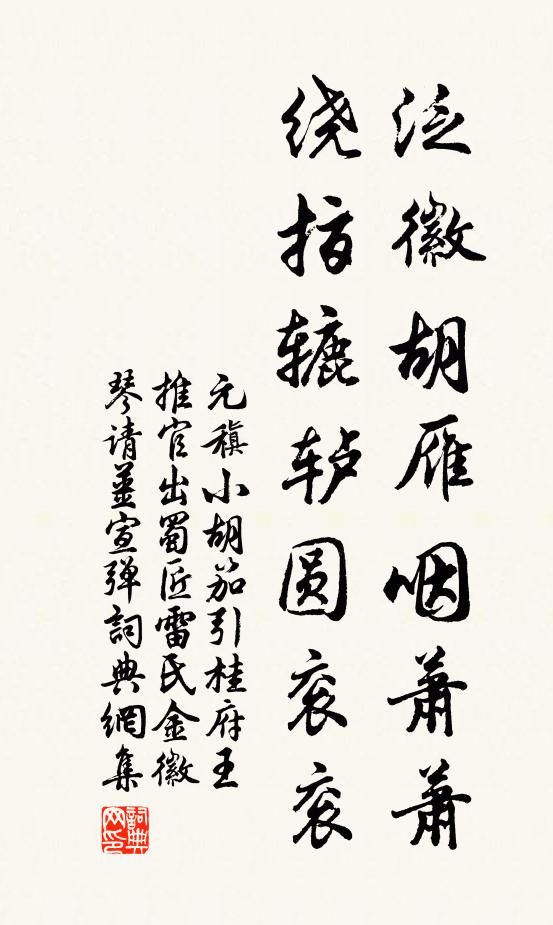 泛徽胡雁咽萧萧
绕指辘轳圆衮衮
元稹小胡笳引桂府王
推官出蜀匠雷氏金徽
琴请姜宣弹詞典網集
詞典
网印